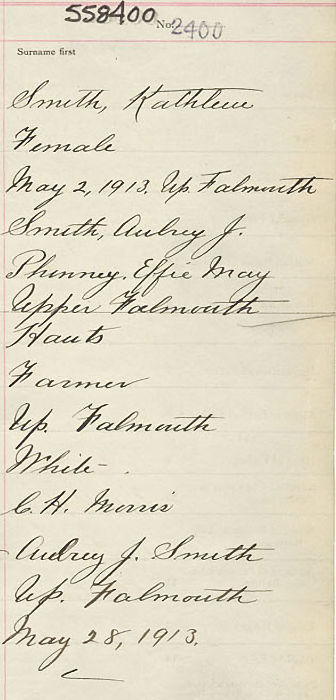 558400
No. 2400
Surname first
Smith, Kathleen
Female
May 2, 1913. Up. Falmouth
Smith, Aubrey J.
Phinney, Effie May
Upper Falmouth
Hants
Farmer
Up. Falmouth
White
C. H. Morris
Aubrey J. Smith
Up. Falmouth
May 28, 1913.